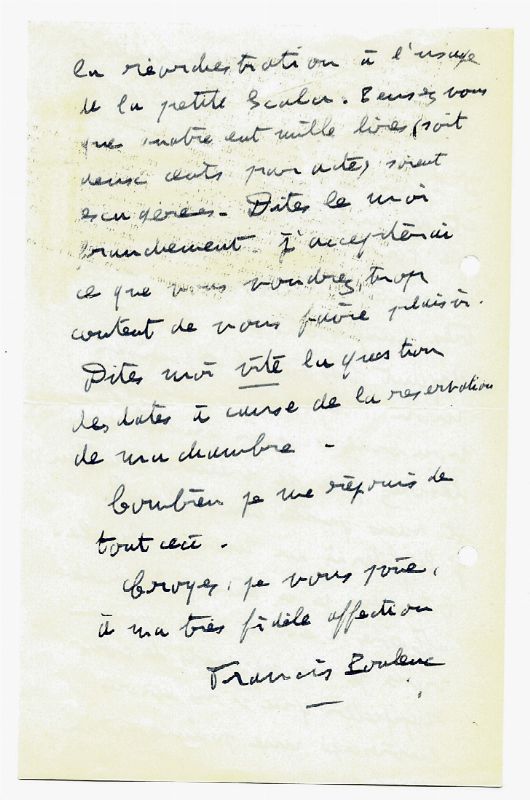 la réorchestration à l'usage
de la petite Scala. Pensez vous
que quatre cent mille lires (soit
deux cents par acte) soient
exagerées. Dites le moi
franchement j'accepterai
ce que vous voudrez, trop
content de vous faire plaisir.
Dites moi vite la question
des dates à cause de la reservation
de ma chambre -
Combien je me réjouis de
tout ceci.
Croyez, je vous prie,
à ma très fidèle affection
Francis Poulenc